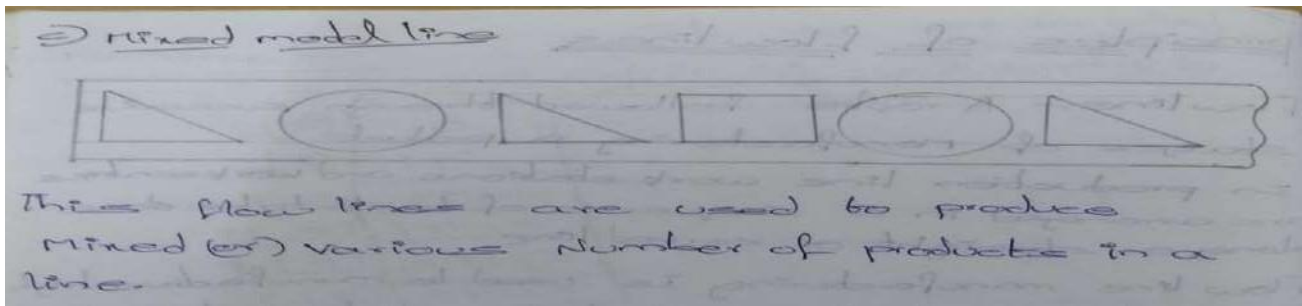 ⇒ Mixed model line
This flow lines are used to produce
Mixed (or) various Number of products in a
line.